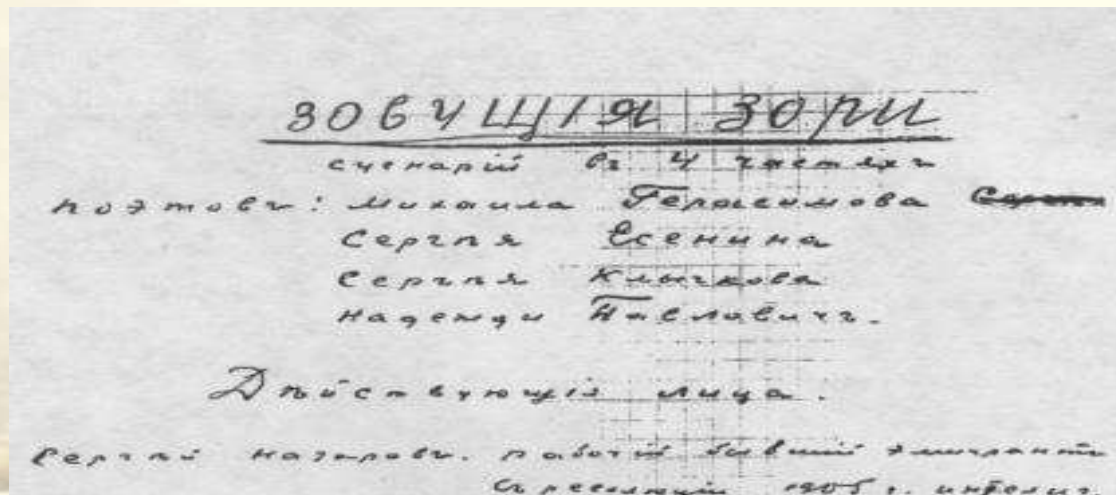 ЗОВУЩІЯ ЗОРИ
сценарій въ 4 частяхъ
поэтовъ: Михаила Герасимова
Сергѣя Есенина
Сергѣя Клычкова
Надежды Павловичъ.
Дѣйствующія лица.
Сергѣй Назаровъ. рабочій бывшій эмигрантъ
1905 г.